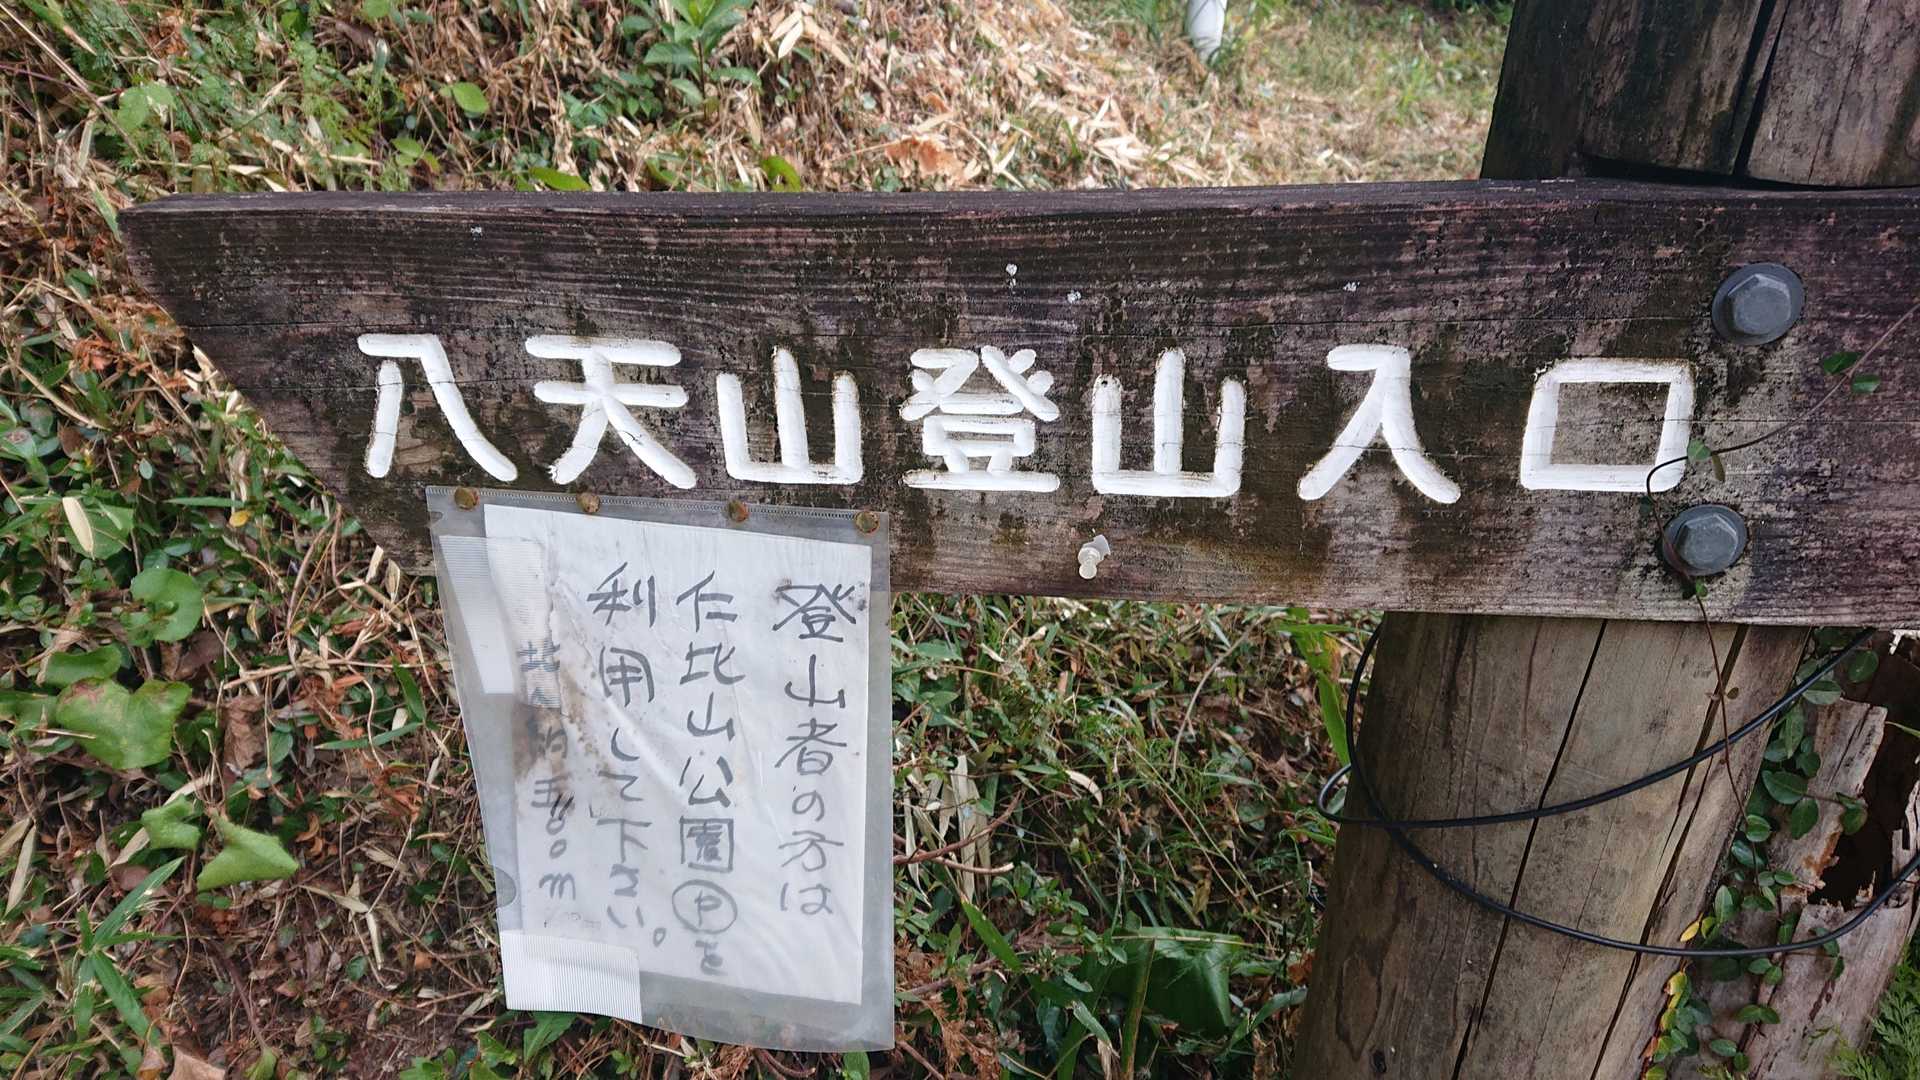 八天山登山入口
登山者の方は
仁比山公園Ⓟを
利用して下さい。
北へ約500m